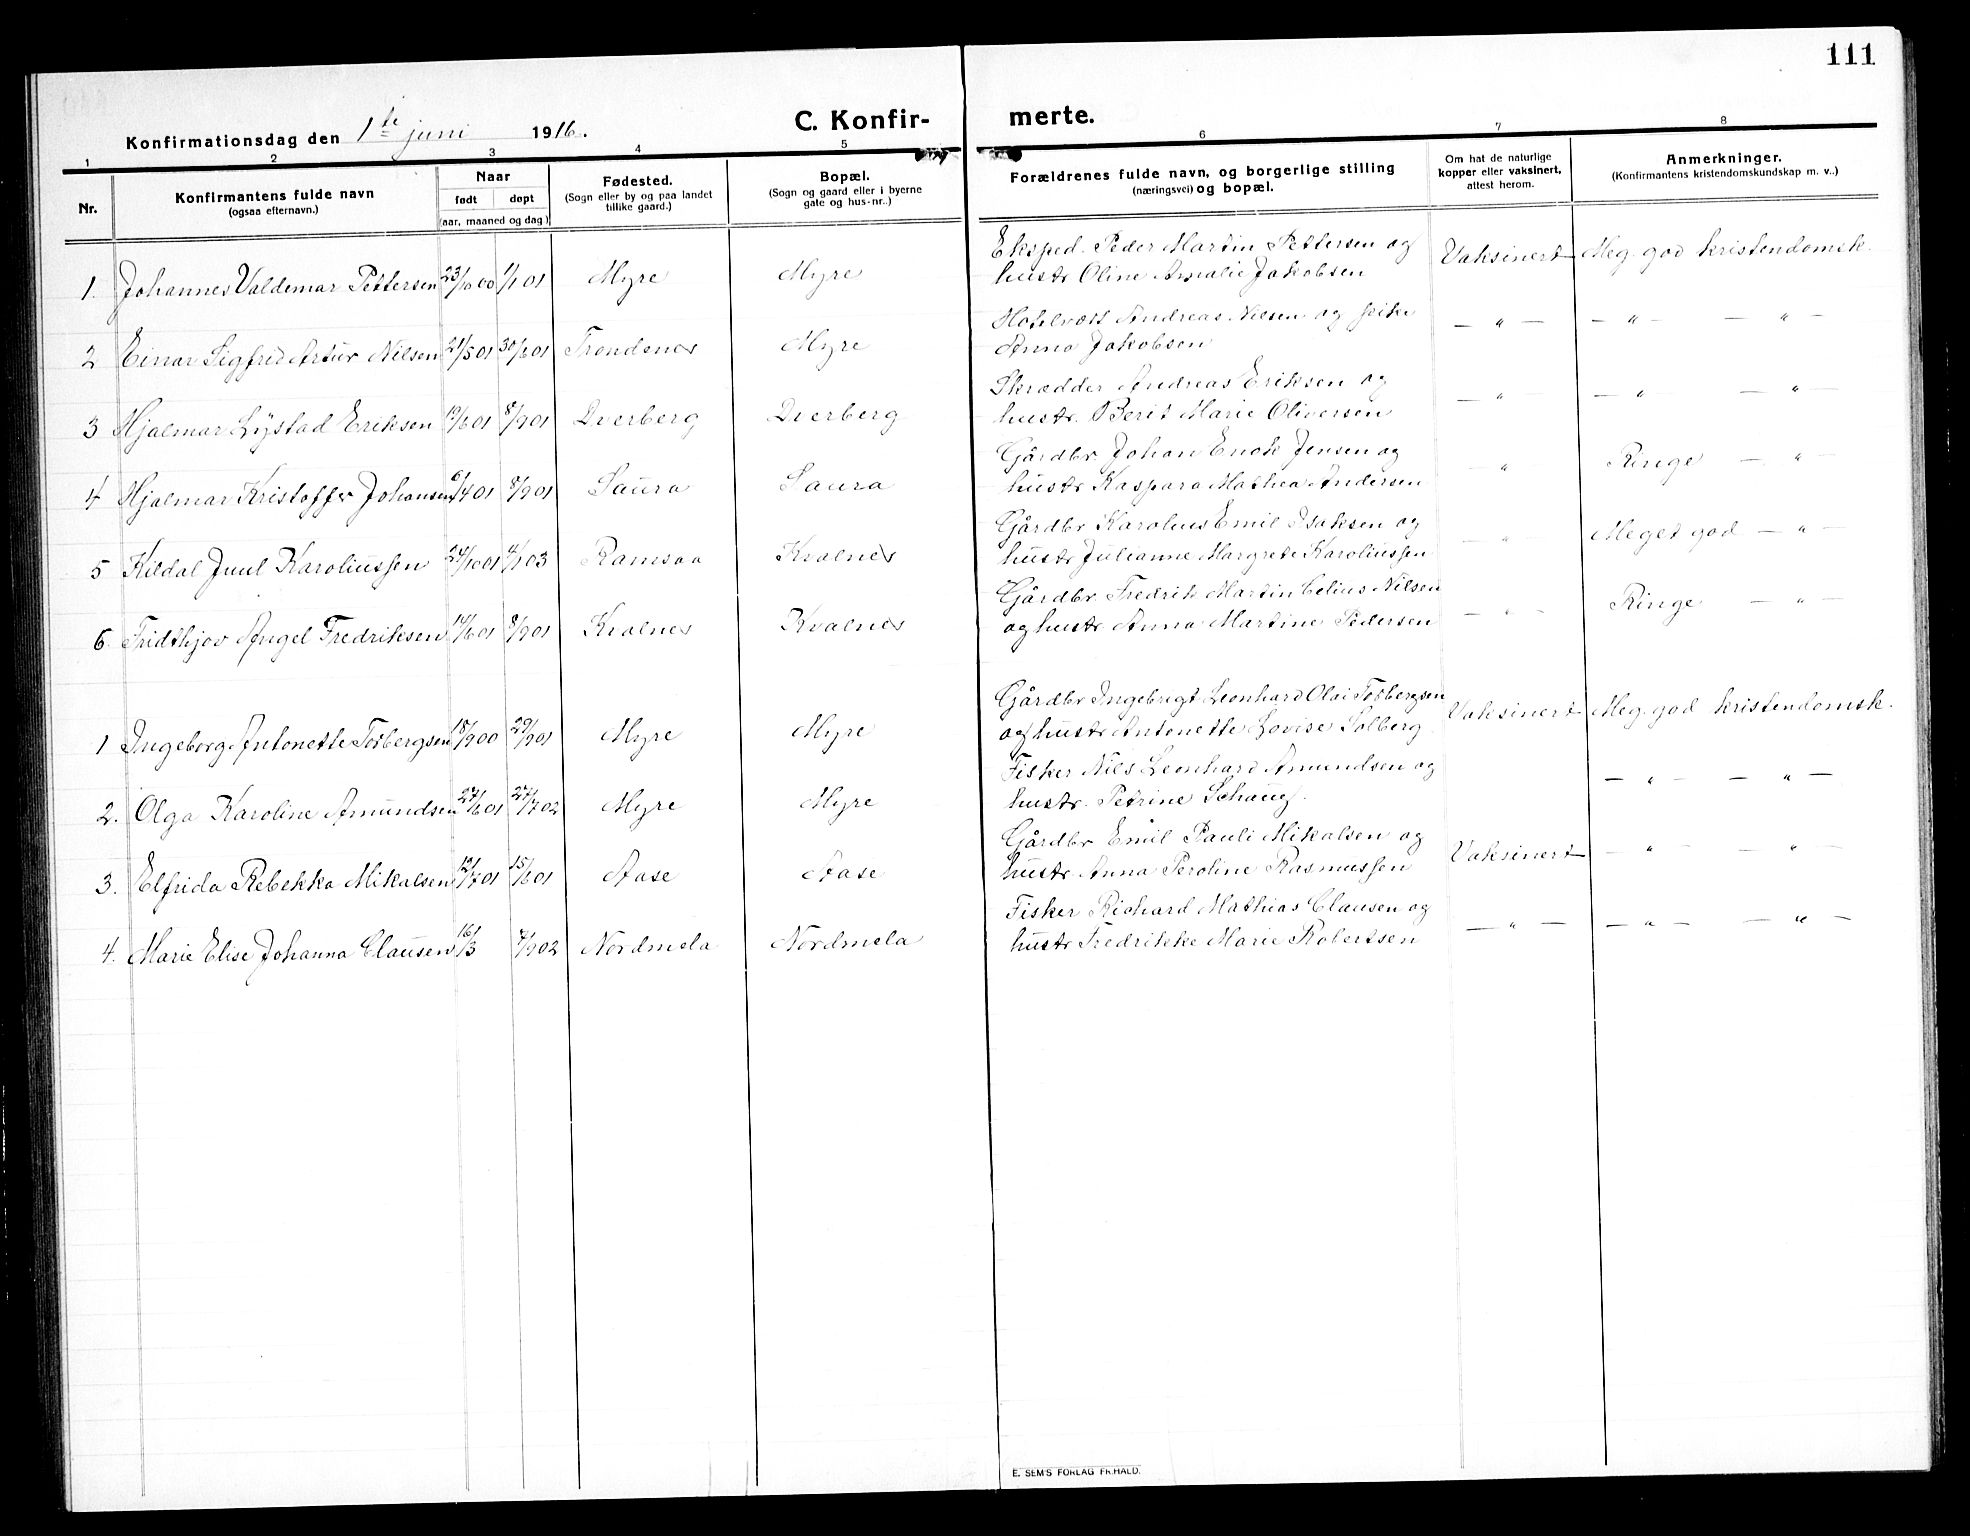 111
Konfirmationsdag den 1ste juni 1916.
C. Konfirmerte.
1 2 3 4 5 6 7 8
Nr.
Konfirmantens fulde navn
(ogsaa efternavn.)
Naar
født døpt
(aar, maaned og dag)
Fødested.
(Sogn eller by og paa landet
tillike gaard.)
Bopæl.
(Sogn og gaard eller i byerne
gate og hus-nr.)
Forældrenes fulde navn, og borgerlige stilling
(næringsvei) og bopæl.
Om hat de naturlige
kopper eller vaksinert,
attest herom.
Anmerkninger.
(Konfirmantens kristendomskundskap m. v..)
Eksped. Peder Martin Pettersen og
1. Johannes Valdemar Pettersen 23/10 00 1/1 01 Myre Myre hustr Oline Amalie Jakobsen Vaksinert Meg. god kristendomsk.
Hotelvært Andreas Nilsen og pike
2 Einar Sigfred Artur Nilsen 21/5 01 30/6 01 Trondenes Myre Anna Jakobsen — " — — " — — " —
Skrædder Andreas Eriksen og
3 Hjalmar Lystad Eriksen 19/6 01 8/9 01 Dverberg Dverberg hustr. Berit Marie Oliversen — " — — " — — " —
Gårdbr Johan Enok Jensen og
4 Hjalmar Kristoffer Johansen 6/4 01 8/9 01 Saura Saura hustr Kaspara Mathea Andersen — " — Ringe — " —
Gårdbr Karolius Emil Isaksen og
5 Kildal Juul Karoliussen 24/10 01 4/1 03 Ramsaa Kvalnes hustr Julianne Margrete Karoliussen — " — Meget god — " —
Gårdbr Fredrik Martin Celius Nilsen
6. Fridthjov Angel Fredriksen 14/6 01 8/9 01 Kvalnes Kvalnes og hustr Anna Martine Pedersen — " — Ringe — " —
Gårdbr Ingebrigt Leonhard Olai Torbergsen
1 Ingeborg Antonette Torbergsen 18/9 00 29/9 01 Myre Myre og hustr Antonette Lovise Solberg Vaksinert Meg. god kristendomsk.
Fisker Nils Leonhard Amundsen og
2. Olga Karoline Amundsen 27/6 01 27/7 02 Myre Myre hustr. Petrine Schaug. — " — — " —
Gårdbr Emil Pauli Mikalsen og
3. Elfrida Rebekka Mikalsen 01 15/6 01 Aase Aase hustr Anna Peroline Rasmussen Vaksinert — " — — " —
Fisker Richard Mathias Clausen og
4. Marie Elise Johanna Clausen 16/3 02 Nordmela Nordmela hustr Fredrikke Marie Robertsen — " — — " — — " —
E. SEM'S FORLAG FR.HALD.